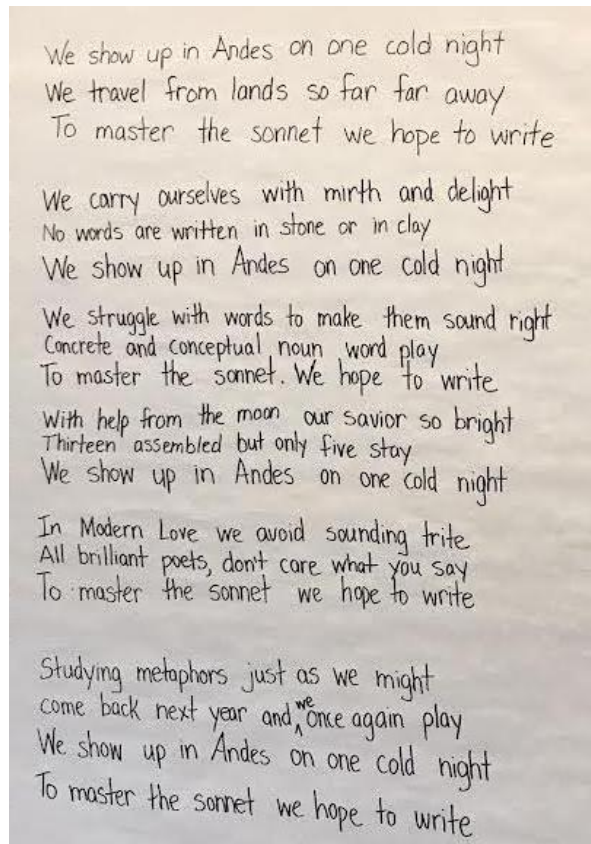 We show up in Andes on one cold night
We travel from lands so far far away
To master the sonnet we hope to write
We carry ourselves with mirth and delight
No words are written in stone or in clay
We show up in Andes on one cold night
We struggle with words to make them sound right
Concrete and conceptual noun word play
To master the sonnet. We hope to write
With help from the moon our savior so bright
Thirteen assembled but only five stay
We show up in Andes on one cold night
In Modern Love we avoid sounding trite
All brilliant poets, don't care what you say
To master the sonnet we hope to write
Studying metaphors just as we might
come back next year and, we once again play
We show up in Andes on one cold night
To master the sonnet we hope to write